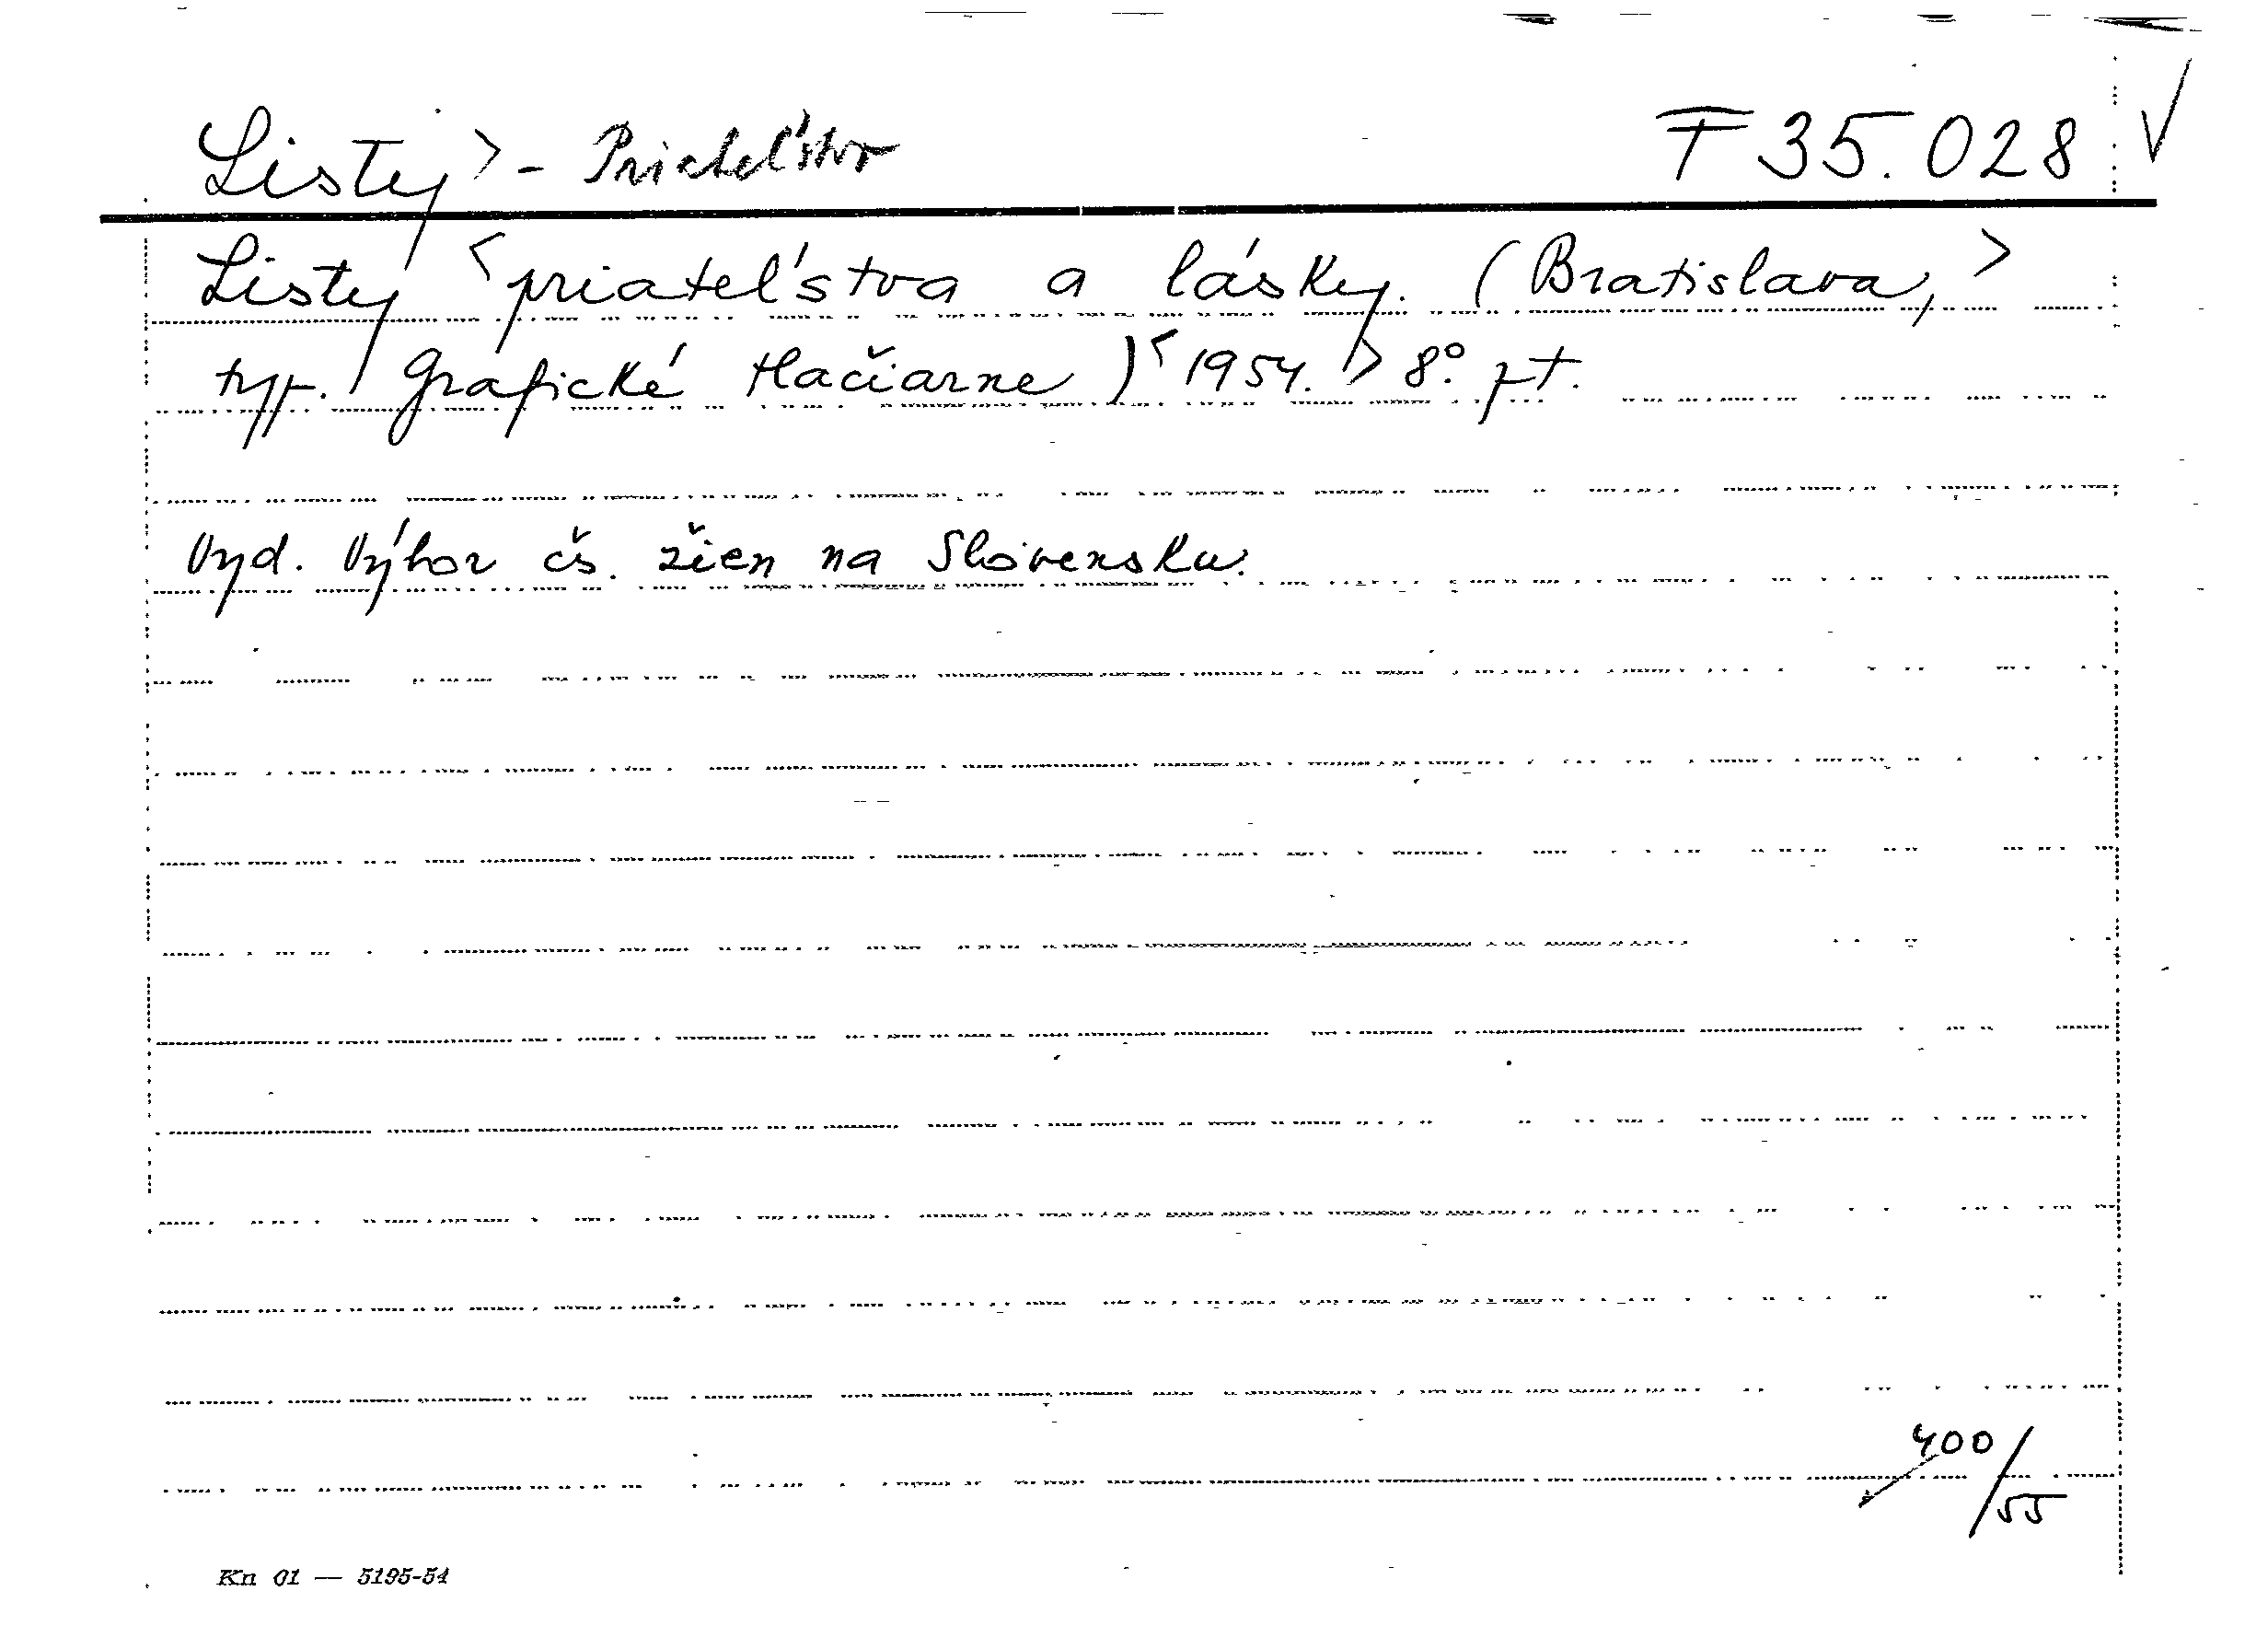 Listy > - Priateľstvo F 35.028 √
Listy < priateľstva a lásky. (Bratislava, >
typ. Grafické tlačiarne ) < 1954. > 8°. pt.
Vyd. Výbor čs. žien na Slovensku.
400/55
Kn 01 — 5195-54